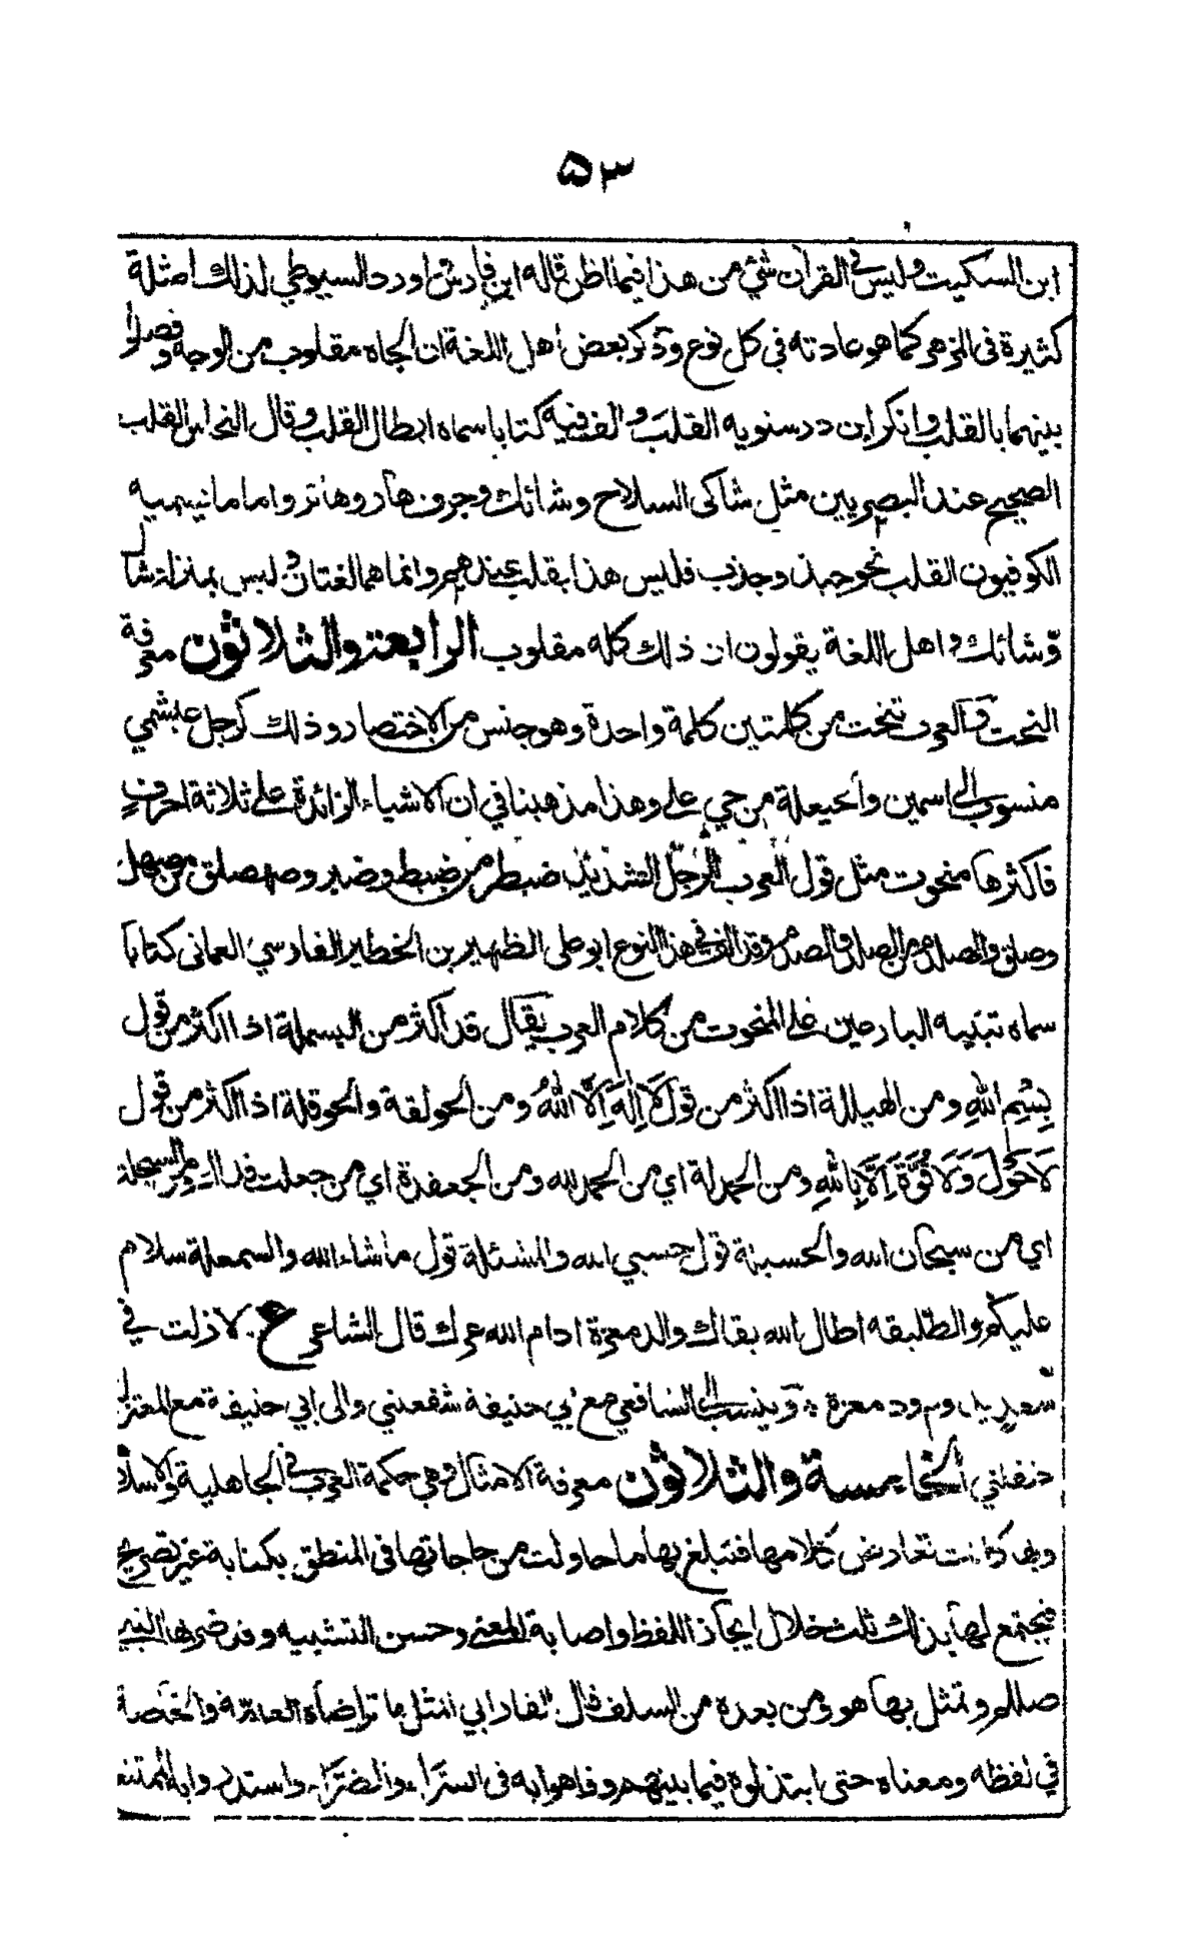 ٥٣
ابن السكيت وليس في القرآن شئ من هذا فيما اظن قاله ابن فارس اورد السيوطي لذلك امثلة
كثيرة في المزهر كما هو عادته في كل نوع وذكر بعض أهل اللغة ان الجاه مقلوب من الوجه وفصلوا
بينهما بالقلب وانكر ابن درستويه القلب والف فيه كتابا سماه ابطال القلب وقال النحاس القلب
الصحيح عند البصريين مثل شاكى السلاح وشائك وجرف هار وهائر واما ما يسميه
الكوفيون القلب نحو جبذ وجذب فليس هذا بقلب عندهم وانما هما لغتان وليس بمنزلة شاك
وشائك واهل اللغة يقولون ان ذلك كله مقلوب الرابعة والثلاثون معرفة
النحت العرب تنحت من كلمتين كلمة واحدة وهو جنس من الاختصار وذلك كرجل عبشمي
منسوب الى اسمين والحيعلة من حي على وهذا مذهبنا في ان الاشياء الزائدة على ثلاثة احرف
فاكثرها منحوت مثل قول العرب الرجل الشديد ضبطر من ضبط وضبر وصهصلق من صهل
وصلق والصلدم من الصلد والصدم وقد الف في هذا النوع ابو على الظهير بن الخطير الفارسي العمانى كتابا
سماه تنبيه البارعين على المنحوت من كلام العرب يقال قد اكثر من البسملة اذا اكثر من قول
بِسْمِ اللهِ ومن الهيللة اذا اكثر من قول لَا اِلٰهَ اِلَّا اللهُ ومن الحولقة والحوقلة اذا اكثر من قول
لَا حَوْلَ وَلَا قُوَّةَ اِلَّا بِاللهِ ومن الحمدلة اي من الحمد لله ومن الجعفدة اي من جعلت فداك ومن السبحلة
اي من سبحان الله والحسبلة قول حسبي الله والمشئلة قول ما شاء الله والسمعلة سلام
عليكم والطلبقه اطال الله بقاك والدمعزة ادام الله عزك قال الشاعر ع لا زلت في
سعد يدوم ودمعزة وينسب الى الشافعي مع ابي حنيفة شفعنتي والى ابي حنيفة مع المعتزلة
حنفلتي الخامسة والثلاثون معرفة الامثال وهي حكمة العرب في الجاهلية والاسلام
وبها كانت تعارض كلامها فتبلغ بها ما حاولت من حاجاتها فى المنطق بكناية غير تصريح
فيجتمع لها بذلك ثلث خلال ايجاز اللفظ واصابة المعنى وحسن التشبيه وقد ضربها النبي
صللم وتمثل بها هو ومن بعده من السلف قال الفارابي المثل ما تراضاه العامة والخاصة
في لفظه ومعناه حتى ابتذلوه فيما بينهم وفاهوا به فى السَّرَّاء والضَّرَّاء واستدروا به الممتنع